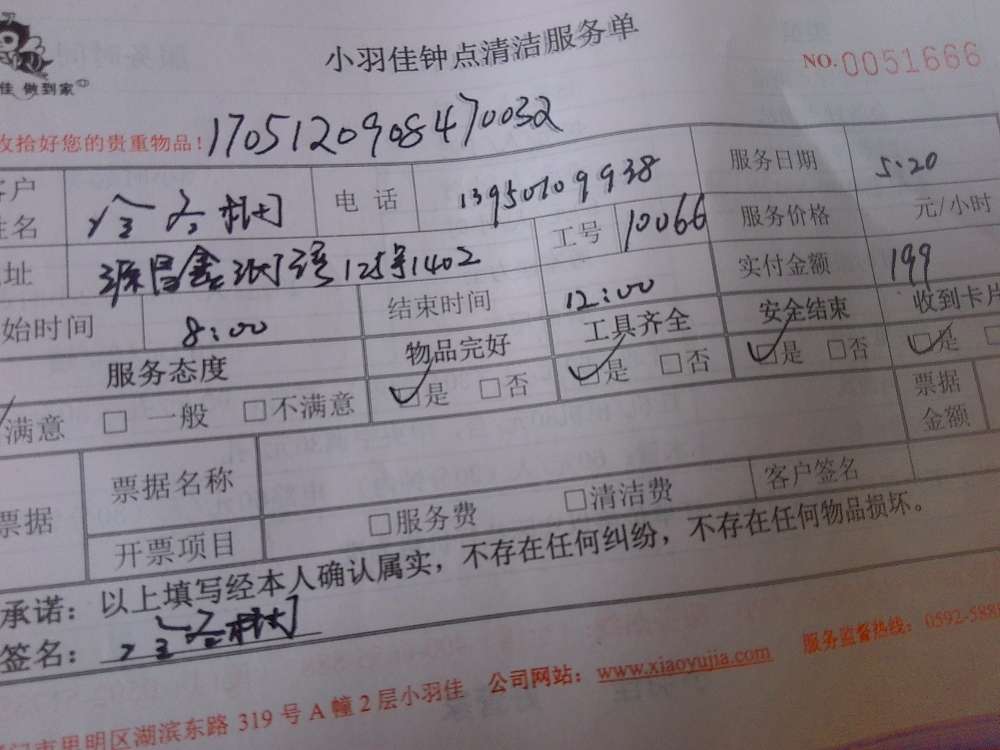 小羽佳钟点清洁服务单
NO.0051666
佳 做到家
收拾好您的贵重物品! 170512090847 0032
客户姓名 电 话 13950109938 服务日期 5.20
工号 10066 服务价格 元/小时
地址 125号1402 实付金额 199
始时间 8:00 结束时间 12:00
服务态度 物品完好 工具齐全 安全结束 收到卡片
满意 □ 一般 □不满意 □是 □否 □是 □否 □是 □否 □是
票据 票据名称 票据金额
开票项目 □服务费 □清洁费 客户签名
承诺: 以上填写经本人确认属实，不存在任何纠纷，不存在任何物品损坏。
签名:
门市思明区湖滨东路 319 号 A 幢 2 层小羽佳 公司网站: www.xiaoyujia.com 服务监督热线: 0592-588